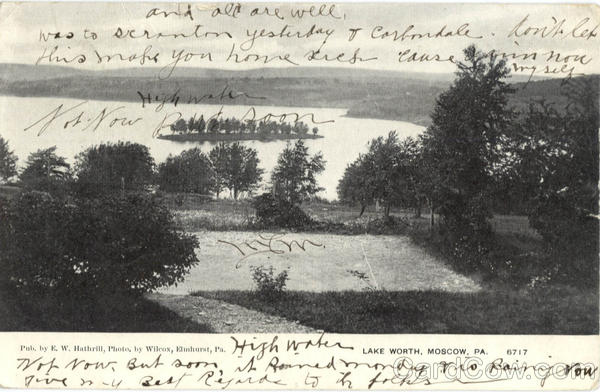 and all are well.
was to Scranton yesterday & to Carbondale. Don't let
this make you home sick cause now
my self
High water
Not Now
But soon
High water
Pub. by E. W. Hathrill, Photo. by Wilcox, Elmhurst, Pa.
LAKE WORTH, MOSCOW, PA. 6717
Not Now But soon. it Rained monday & is Raining Now
Give my Best Regards to the folks